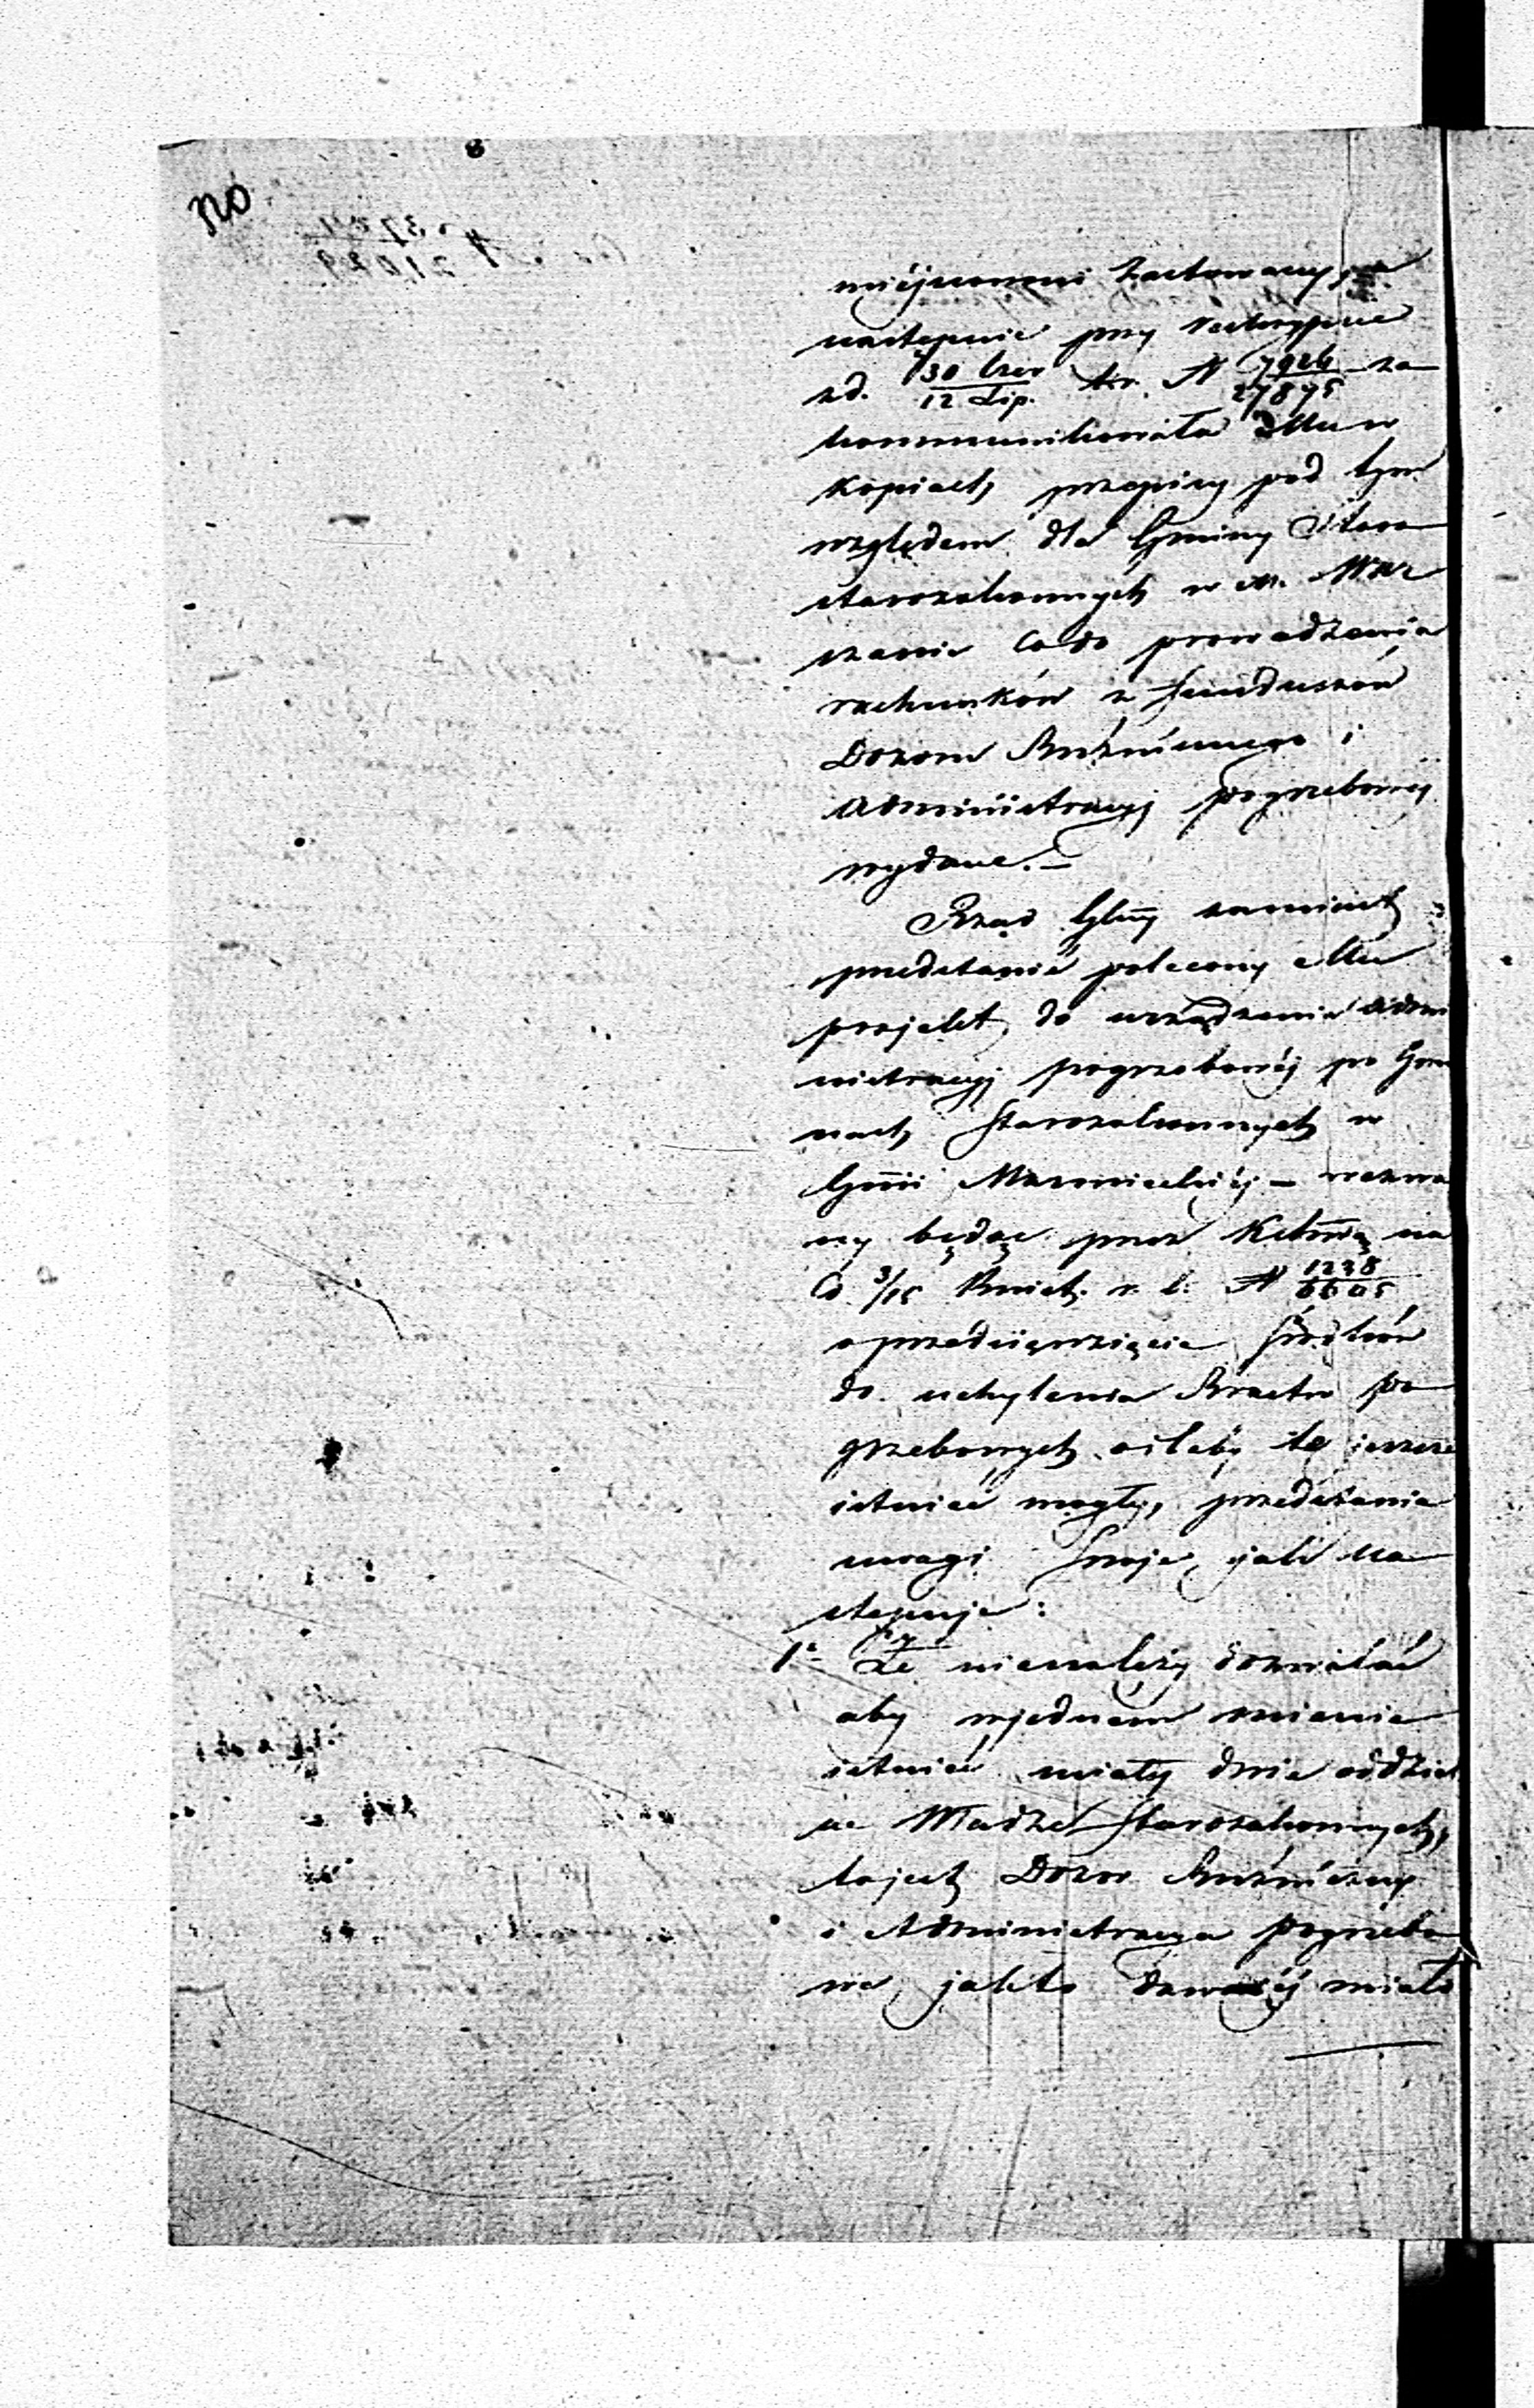 no
miejscowemi zastosowany, a
następnie przy Reskrypcie
zd. 30 Czer/12 Lip. t.r. N 7926/27875 za
kommunikowała Mu w
kopiach przepisy pod tym
względem dla Gminy
starozakonnych w m. War
szawie co do prowadzenia
rachunków z funduszów
Dozoru Bużnicznego i
Administracyj pogrzebowej
wydane.–
Rząd Gbny zamiast
przedstawić polecony Mu
projekt do urządzenia Admi
nistracyj pogrzebowéj po Gmi
nach Starozakonnych w
Gbnii Mazowieckiéj – wezwa
ny będąc przez Kctwą na
d 3/15 Kwiet. r. b. N 1238/6605
o przedsięwzięcie środków
do uchylenia Bractw po
grzebowych oileby te jeszcze
istnieć mogły, przedstawia
uwagi swoje jak na
stępuje:
1e Że nienależy dozwalać
aby wjedném mieście
istnieć miały dwie oddziel
ne Władze Starozakonnych,
tojest Dozor Bużniczny
i Administracya pogrzebo
wa jakto dawniéj miało